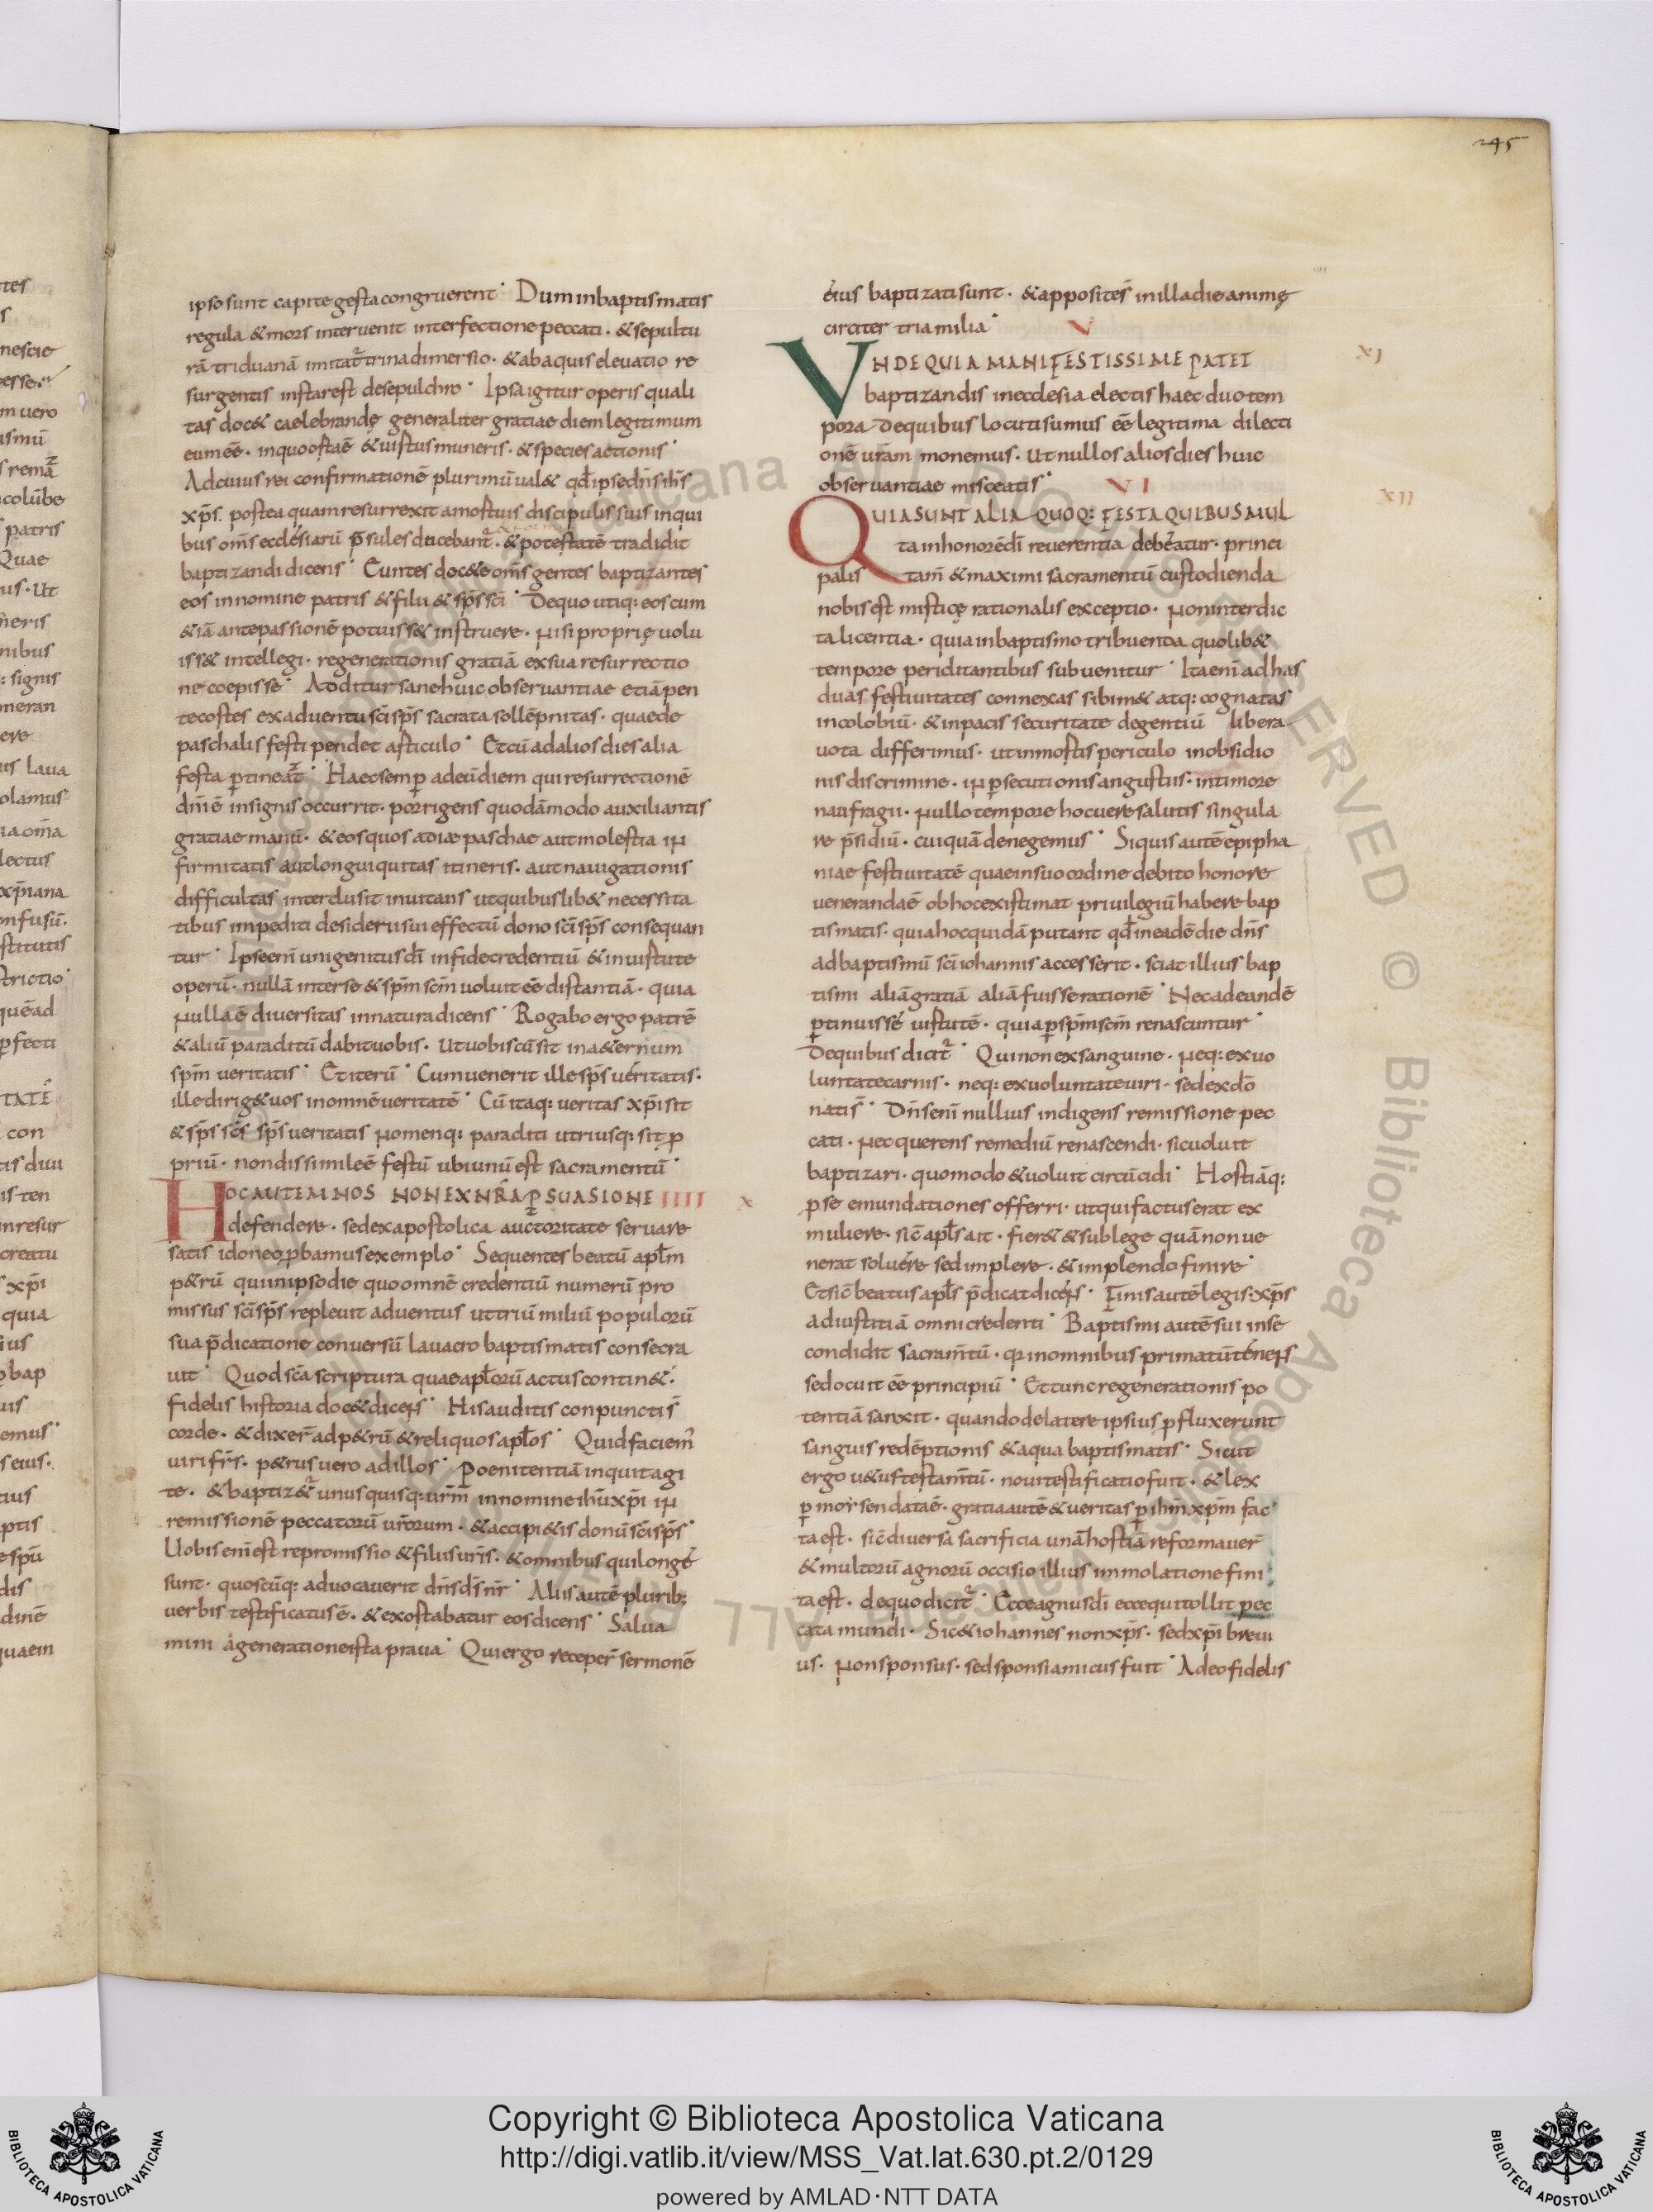 245
ipso sunt capite gesta congruerent· Dum in baptismatis
regula & mors intervenit interfectione peccati· & sepultu
rā triduanā imitat᷒ trina dimersio· & ab aquis elevatio re
surgentis instar est de sepulchro· Ipsa igitur operis quali
tas doc& caelebrandę generaliter gratiae diem legitimum
eum eē· in quo orta ē & virtus muneris· & species actionis·
Ad cuius rei confirmationē plurimū val& qđ ipse dn̄s ih̄s
xp̄s postea quam resurrexit a mortuis discipulis suis in qui
bus om̄s ecclesiarū p̄sules docebant᷒· & potestatē tradidit
baptizandi dicens· Euntes doc&e om̄s gentes baptizantes
eos in nomine patris & filii & sp̄s sc̄i· De quo utiq: eos cum
&iā ante passionē potuiss& instruere· nisi proprię volu
iss& intellegi· regenerationis gratiā ex sua resurrectio
ne coepisse· Additur sane huic observantiae etiā pen
tecostes ex adventu sc̄i sp̄s sacrata sollēpnitas· quae de
paschalis festi pendet articulo· Et cū ad alios dies alia
festa ptineāt· Haec semp ad eū diem qui resurrectionē
dn̄i ē insignis occurrit· porrigens quodāmodo auxiliantis
gratiae manū· & eos quos a die paschae aut molestia in
firmitatis aut longuiquitas itineris· aut navigationis
difficultas interclusit invitans ut quibuslib& necessita
tibus impediti desiderii sui effectū dono sc̄i sp̄s consequan
tur· Ipse eni unigenitus dī in fide credentiū & in virtute
operū· nullā inter se & sp̄m sc̄m voluit eē distantiā· quia
nulla ē diversitas in natura dicens· Rogabo ergo patrē
& aliū paraclitū dabit vobis· ut vobiscū sit in a&ernum
sp̄m veritatis· Et iterū· Cum venerit ille sp̄s veritatis·
ille dirig& vos in omnē veritatē· Cū itaq: veritas xp̄i sit
& sp̄s sc̄s sp̄s veritatis nomenq: paracliti utriusq: sit p
priū· non dissimile ē festū ubi unū est sacramentū·
HOC AUTEM NOS NON EX NRA PSUASIONE IIII X
defendere· sed ex apostolica auctoritate servare
satis idoneo pbamus exemplo· Sequentes beatū apłm
p&rū qui in ipso die quo omnē credentiū numerū pro
missus sc̄i sp̄s replevit adventus ut triū miliū populorū
sua p̄dicatione conversū lavacro baptismatis consecra
vit· Quod sc̄a scriptura quae apłorū actus contin&·
fidelis historia doc& dicens· His auditis conpuncti s̄
corde· & dixer̄ ad p&rū & reliquos apłos· Quid faciem᷒
viri fr̄s· p&rus vero ad illos· Poenitentiā inquit agi
te· & baptiz&᷒ unusquisq: vr̄m in nomine ih̄u xp̄i in
remissionē peccatorū vr̄orum· & accipi&is donū sc̄i sp̄s·
Vobis eni est repromissio & filiis vr̄is· & omnibus qui longe
sunt· quoscūq: advocaverit dn̄s dīs nr̄· Aliis autē plurib;
verbis testificatus ē· & exortabatur eos dicens· Salva
mini a generatione ista prava· Qui ergo receper̄ sermonē
eius baptizati sunt· & appositę s̄ in illa die animę
circiter tria milia· V
VNDE QUIA MANIFESTISSIME PATET XI
baptizandis in ecclesia electis haec duo tem
pora de quibus locuti sumus eē legitima dilecti
onē vr̄am monemus· ut nullos alios dies huic
observantiae misceatis· VI
QUIA SUNT ALIA QUOQ: FESTA QUIBUS MUL XII
ta in honorē dī reverentia debeatur· princi
palis tam̄ & maximi sacramentū custodienda
nobis est misticę rationalis exceptio· non interdic
ta licentia· qui a in baptismo tribuenda quolib&
tempore periclitantibus subvenitur· Ita eni ad has
duas festivitates connexas sibim& atq: cognatas
incolomiū· & in pacis securitate degentiū libera
vota differimus· ut in mortis periculo in obsidio
nis discrimine· in psecutionis angustiis· in timore
naufragii· nullo tempore hoc verę salutis singula
re p̄sidiū· cuiquā denegemus· Si quis autē epipha
niae festivitatē quae in suo ordine debito honore
veneranda ē ob hoc existimat privilegiū habere bap
tismatis· quia hoc quidā putant qđ in eadē die dn̄s
ad baptismū sc̄i iohannis accesserit· sciat illius bap
tismi aliā gratiā aliā fuisse rationē· Nec ad eandē
ptinuisse virtutē· qui a p sp̄m sc̄m renascuntur·
De quibus dicit᷒· Qui non ex sanguine· neq: ex vo
luntate carnis· neq: ex voluntate viri· sed ex dō
nati s̄· Dn̄s eni nullius indigens remissione pec
cati· nec querens remediū renascendi· sic voluit
baptizari· quomodo & voluit circūcidi· Hostiāq:
p se emundationes offerri· ut qui factus erat ex
muliere· sic̄ apłs ait· fier& & sub lege quā non ve
nerat solvere sed implere· & implendo finire·
Et sic̄ beatus apłs p̄dicat dicens· Finis autē legis xp̄s
ad iustitiā omni credenti· Baptismi autē sui in se
condidit sacram̄tū· q̄ in omnibus primatū tenens
se docuit eē principiū· Et tunc regenerationis po
tentiā sanxit· quando de latere ipsius pfluxerunt
sanguis redēptionis & aqua baptismatis· Sicut
ergo v&us testam̄tū· novi testificatio fuit· & lex
p moysen data ē· gratia autē & veritas p ih̄m xp̄m fac
ta est· sic̄ diversa sacrificia unā hostiā reformaver̄
& multorū agnorū occisio illius immolatione fini
ta est· de quo dicit᷒· Ecce agnus dī ecce qui tollit pec
cata mundi· Sic & iohannes non xp̄s· sed xp̄i brevi
us· non sponsus· sed sponsi amicus fuit· Adeo fidelis
Copyright © Biblioteca Apostolica Vaticana
http://digi.vatlib.it/view/MSS_Vat.lat.630.pt.2/0129
powered by AMLAD·NTT DATA
BIBLIOTECA APOSTOLICA VATICANA
BIBLIOTECA APOSTOLICA VATICANA